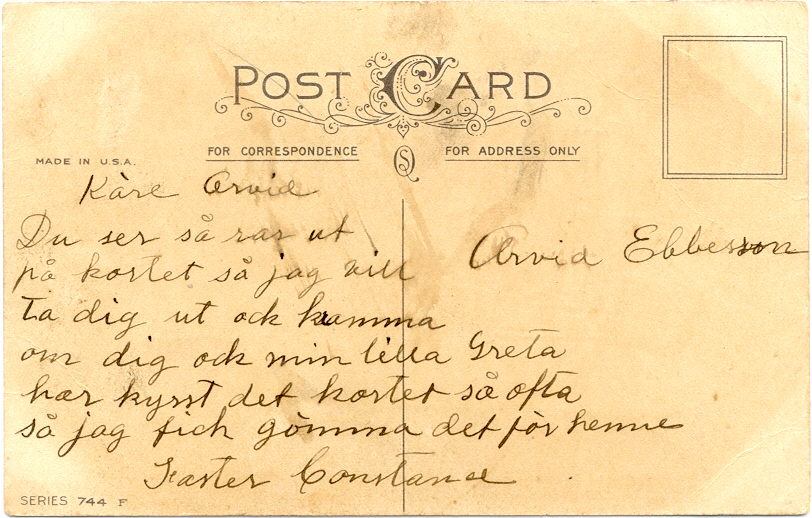 POST CARD
MADE IN U.S.A.
FOR CORRESPONDENCE
FOR ADDRESS ONLY
Käre Arvid
Du ser så rar ut
på kortet så jag vill
ta dig ut ock kramma
om dig ock min lilla Greta
har kysst det kortet så ofta
så jag fick gömma det för henne
Faster Constance
Arvid Ebbesson
SERIES 744 F